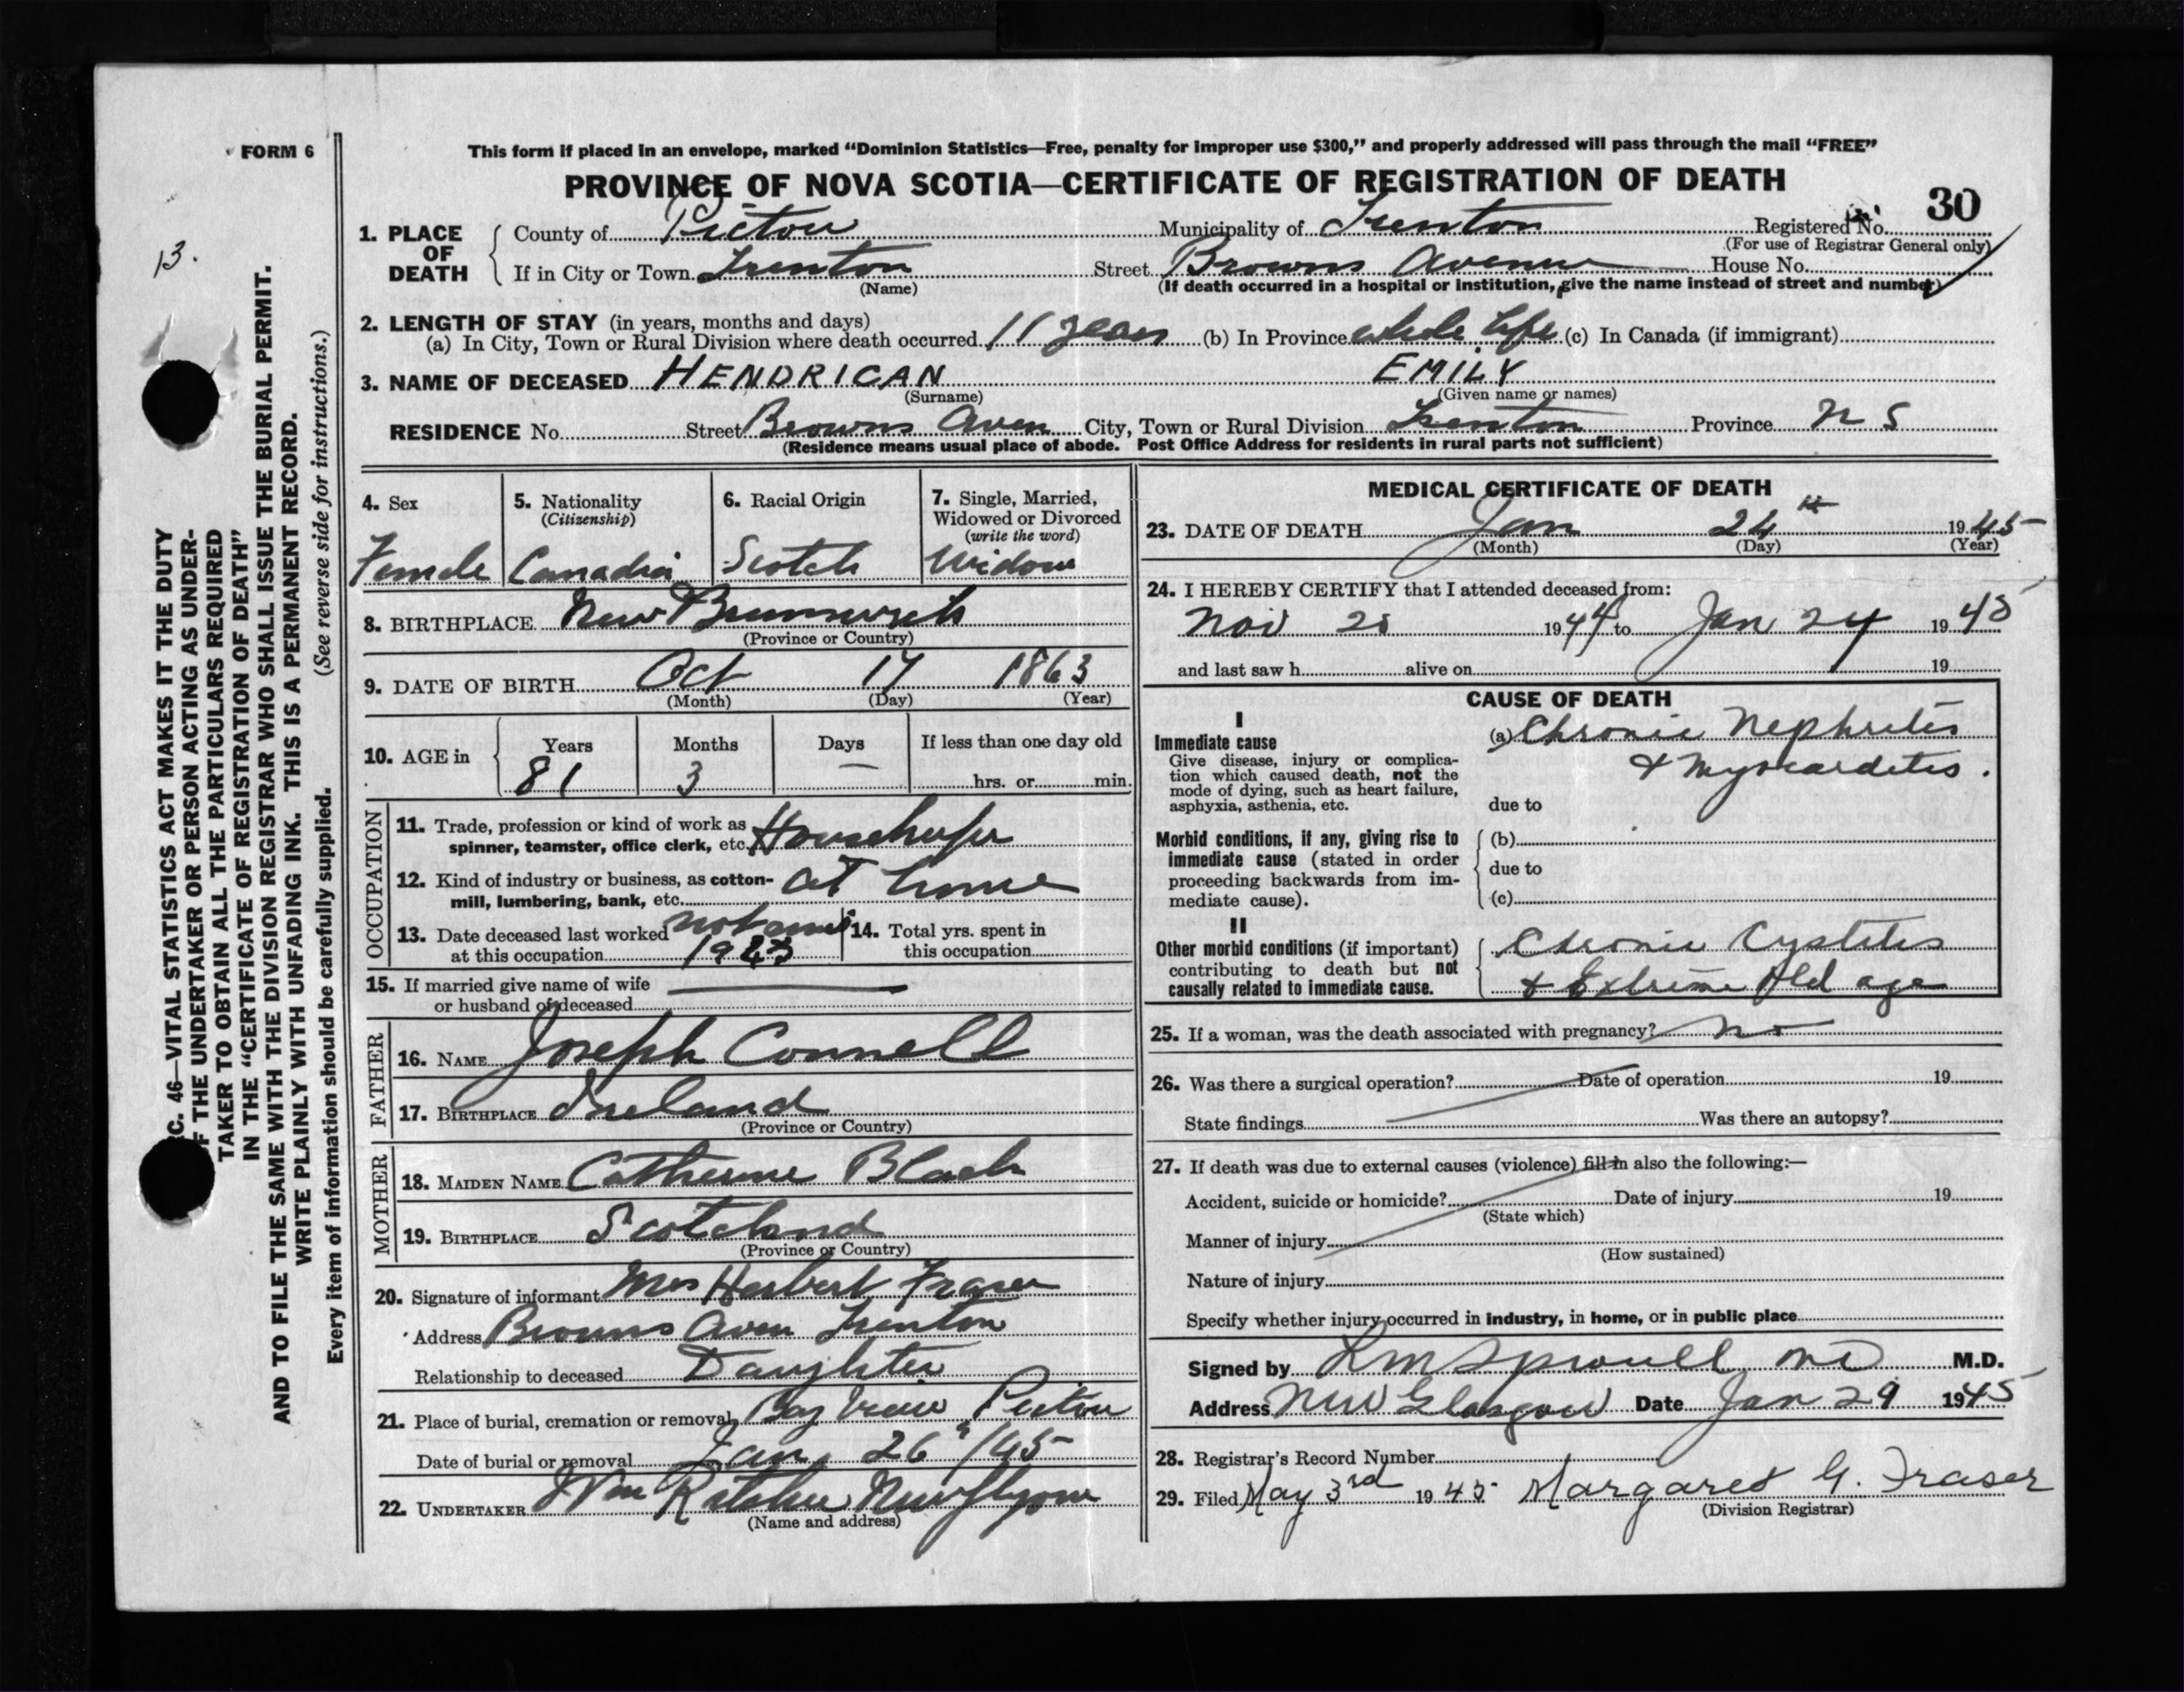 FORM 6
This form if placed in an envelope, marked “Dominion Statistics—Free, penalty for improper use $300,” and properly addressed will pass through the mail “FREE”
PROVINCE OF NOVA SCOTIA—CERTIFICATE OF REGISTRATION OF DEATH
30
13.
1. PLACE OF DEATH
County of Pictou Municipality of Trenton Registered No.
(For use of Registrar General only)
If in City or Town Trenton Street Browns Avenue House No.
(Name)
(If death occurred in a hospital or institution, give the name instead of street and number)
2. LENGTH OF STAY (in years, months and days)
(a) In City, Town or Rural Division where death occurred 11 years (b) In Province whole life (c) In Canada (if immigrant)
3. NAME OF DECEASED HENDRICAN EMILY
(Surname) (Given name or names)
RESIDENCE No. Street Browns Aven City, Town or Rural Division Trenton Province N S
(Residence means usual place of abode. Post Office Address for residents in rural parts not sufficient)
4. Sex
Female
5. Nationality
(Citizenship)
Canadia
6. Racial Origin
Scotch
7. Single, Married,
Widowed or Divorced
(write the word)
Widow
8. BIRTHPLACE New Brunswick
(Province or Country)
9. DATE OF BIRTH Oct 17 1863
(Month) (Day) (Year)
10. AGE in
Years Months Days If less than one day old
81 3 — hrs. or min.
OCCUPATION
11. Trade, profession or kind of work as
spinner, teamster, office clerk, etc. Housekeeper
12. Kind of industry or business, as cotton-
mill, lumbering, bank, etc. At home
13. Date deceased last worked not since
at this occupation
14. Total yrs. spent in
this occupation
15. If married give name of wife
or husband of deceased
FATHER
16. NAME Joseph Connell
17. BIRTHPLACE Ireland
(Province or Country)
MOTHER
18. MAIDEN NAME Catherine Black
19. BIRTHPLACE Scotland
(Province or Country)
20. Signature of informant Mrs Herbert Fraser
Address Browns Aven Trenton
Relationship to deceased Daughter
21. Place of burial, cremation or removal Bay View Pictou
Date of burial or removal Jan 26/45
22. UNDERTAKER Wm Ritchie New Glasgow
(Name and address)
MEDICAL CERTIFICATE OF DEATH
23. DATE OF DEATH Jan 24th 1945
(Month) (Day) (Year)
24. I HEREBY CERTIFY that I attended deceased from:
Nov 1944 to Jan 24 1945
and last saw h alive on 19
CAUSE OF DEATH
I
Immediate cause
Give disease, injury or complica-
tion which caused death, not the
mode of dying, such as heart failure,
asphyxia, asthenia, etc.
(a) Chronic Nephritis
& Myocarditis.
due to
Morbid conditions, if any, giving rise to
immediate cause (stated in order
proceeding backwards from im-
mediate cause).
(b)
due to
(c)
II
Other morbid conditions (if important)
contributing to death but not
causally related to immediate cause.
Chronic Cystitis
& Extreme Old age
25. If a woman, was the death associated with pregnancy? No
26. Was there a surgical operation? Date of operation 19
State findings Was there an autopsy?
27. If death was due to external causes (violence) fill in also the following:—
Accident, suicide or homicide? Date of injury 19
(State which)
Manner of injury
(How sustained)
Nature of injury
Specify whether injury occurred in industry, in home, or in public place
Signed by L M Sproull MD M.D.
Address New Glasgow Date Jan 29 1945
28. Registrar's Record Number
29. Filed May 3rd 1945 Margaret G. Fraser
(Division Registrar)
C. 46—VITAL STATISTICS ACT MAKES IT THE DUTY
F THE UNDERTAKER OR PERSON ACTING AS UNDER-
TAKER TO OBTAIN ALL THE PARTICULARS REQUIRED
IN THE “CERTIFICATE OF REGISTRATION OF DEATH”
AND TO FILE THE SAME WITH THE DIVISION REGISTRAR WHO SHALL ISSUE THE BURIAL PERMIT.
WRITE PLAINLY WITH UNFADING INK. THIS IS A PERMANENT RECORD.
Every item of information should be carefully supplied. (See reverse side for instructions.)